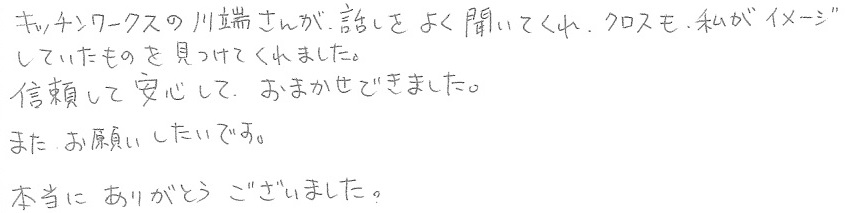 キッチンワークスの川端さんが、話しをよく聞いてくれ、クロスも、私がイメージ
していたものを見つけてくれました。
信頼して安心して、おまかせできました。
また、お願いしたいです。
本当にありがとうございました。